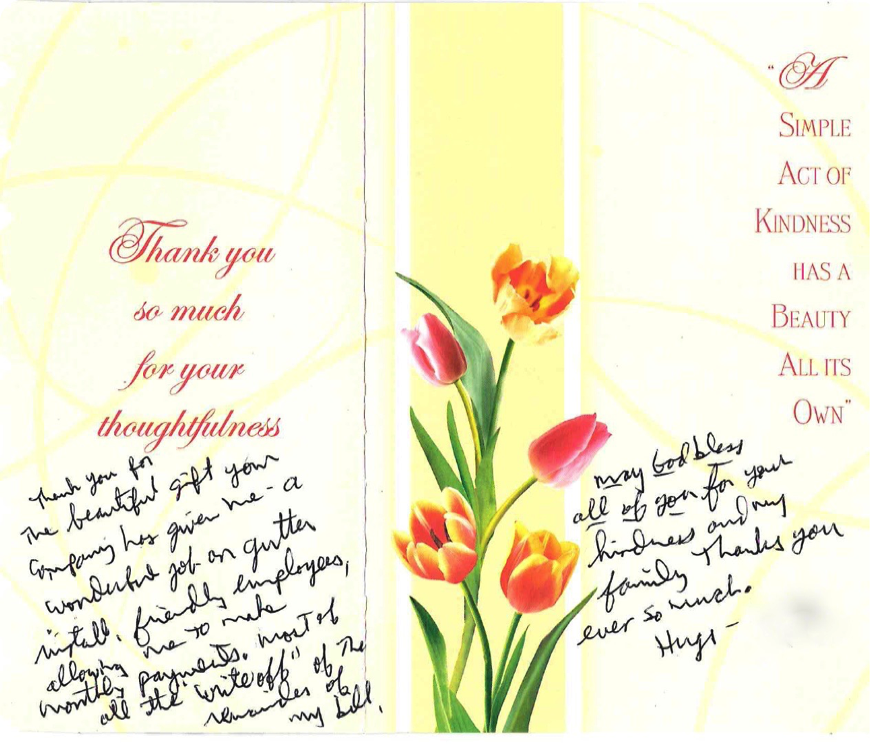 Thank you
so much
for your
thoughtfulness
Thank you for
The beautiful gift your
Company has given me - a
wonderful job on gutter
install, friendly employees,
allowing me to make
monthly payments. most of
all the "write off" of the
remainder of
my bill.
"A
SIMPLE
ACT OF
KINDNESS
HAS A
BEAUTY
ALL ITS
OWN"
may God bless
all of you for your
kindness and my
family Thanks you
ever so much.
Hugs -